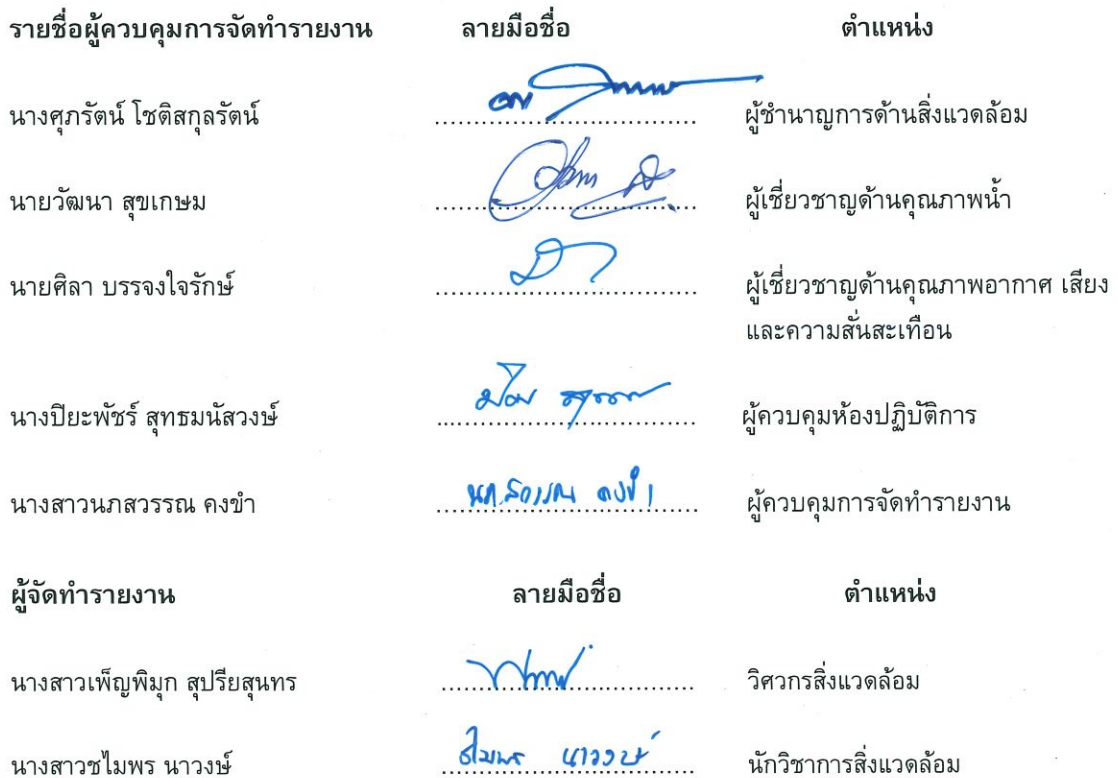 รายชื่อผู้ควบคุมการจัดทำรายงาน ลายมือชื่อ ตำแหน่ง
นางศุภรัตน์ โชติสกุลรัตน์ ผู้ชำนาญการด้านสิ่งแวดล้อม
นายวัฒนา สุขเกษม ผู้เชี่ยวชาญด้านคุณภาพน้ำ
นายศิลา บรรจงใจรักษ์ ผู้เชี่ยวชาญด้านคุณภาพอากาศ เสียง
และความสั่นสะเทือน
นางปิยะพัชร์ สุทธมนัสวงษ์ ผู้ควบคุมห้องปฏิบัติการ
นางสาวนภสวรรณ คงขำ นภสวรรณ คงขำ ผู้ควบคุมการจัดทำรายงาน
ผู้จัดทำรายงาน ลายมือชื่อ ตำแหน่ง
นางสาวเพ็ญพิมุก สุปรียสุนทร วิศวกรสิ่งแวดล้อม
นางสาวชไมพร นาวงษ์ ชไมพร นาวงษ์ นักวิชาการสิ่งแวดล้อม